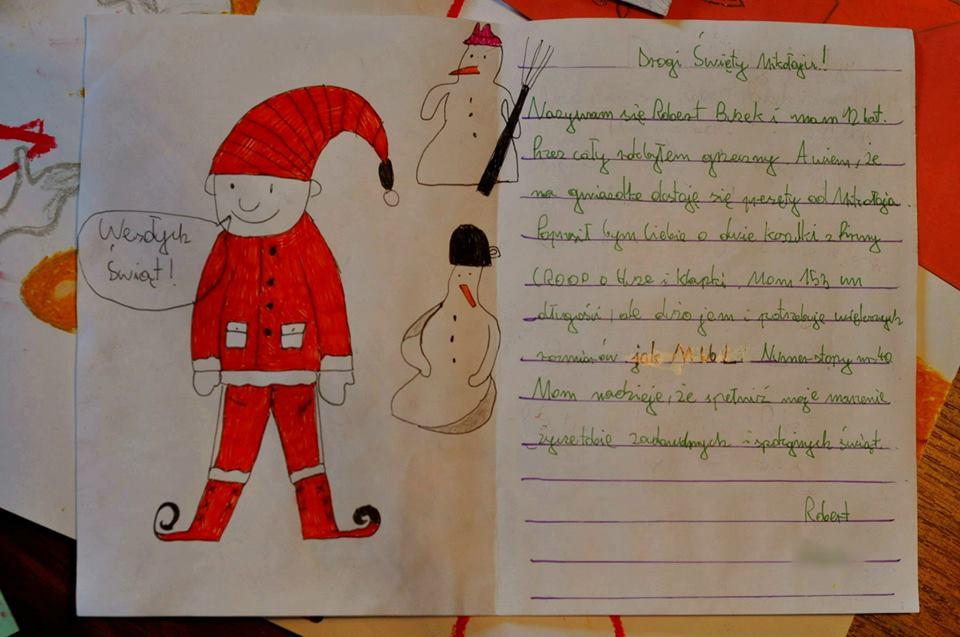 Wesołych
Świąt!
Drogi Święty Mikołaju!
Nazywam się Robert Bizek i mam 12 lat.
Przez cały rok byłem grzeczny. A wiem, że
na gwiazdke dostaję się prezęty od Mikołaja.
Poprosił bym Ciebie o dwie koszulki z Firmy
CROOP o i klapki. Mam 153 um
długości, ale dużo jem i potrzebuję większych
rozmiarów jak M lub L. Numer stopy nr 40.
Mam nadzieję, że spełnisz moje marzenie
życze tobie i spokojnych świąt.
Robert